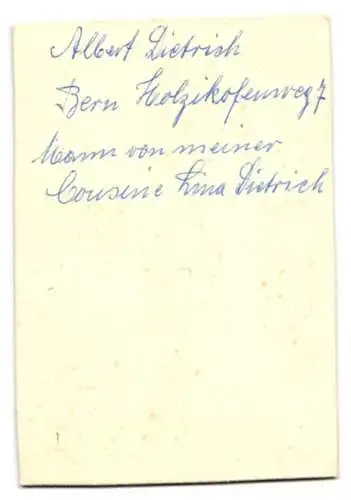 Albert Dietrich
Bern Holzikofenweg 7
Mann von meiner
Cousine Lina Dietrich